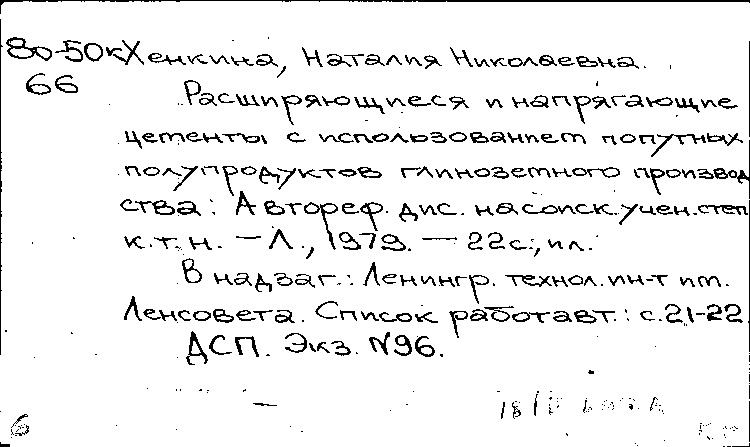 80-50к Хенкина, Наталия Николаевна.
66
Расширяющиеся и напрягающие
цементы с использованием попутных
полупродуктов глиноземного производ
ства: Автореф. дис. на соиск. учен. степ
к.т.н. — Л., 1979. — 22с., ил.
В надзаг.: Ленингр. технол. ин-т им.
Ленсовета. Список работ авт.: с. 21-22
ДСП. Экз. N96.
6